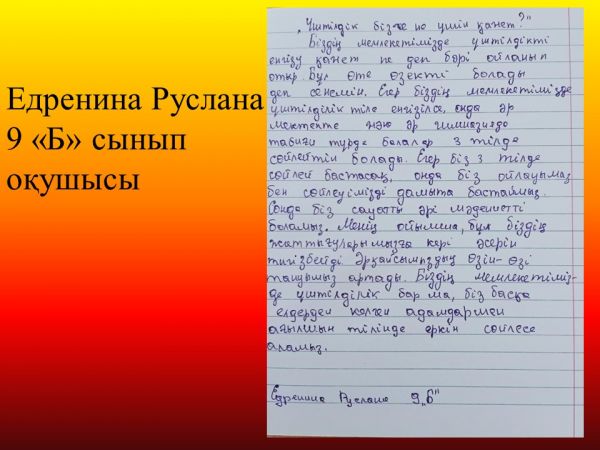 Едренина Руслана
9 «Б» сынып
оқушысы
„Үштілдік бізге не үшін қажет?"
Біздің мемлекетімізде үштілдікті
енгізу қажет пе деп бәрі ойланып
отыр. Бұл өте өзекті болады
деп сенемін. Егер біздің мемлекетімізде
үштілділік тіле енгізілсе, онда әр
мектепте және әр гимназияда
табиғи түрде балалар 3 тілде
сөйлейтін болады. Егер біз 3 тілде
сөйлей бастасақ, онда біз ойлауымыз
бен сөйлеуімізді дамыта бастаймыз.
Сонда біз сауатты әрі мәдениетті
боламыз. Менің ойымша, бұл біздің
жаттығуларымызға кері әсерін
тигізбейді Әрқайсымыздың өзін-өзі
тануымыз артады. Біздің мемлекетіміз-
де үштілділік бар ма, біз басқа
елдерден келген адамдармен
ағылшын тілінде еркін сөйлесе
аламыз.
Едренина Руслана 9„Б"